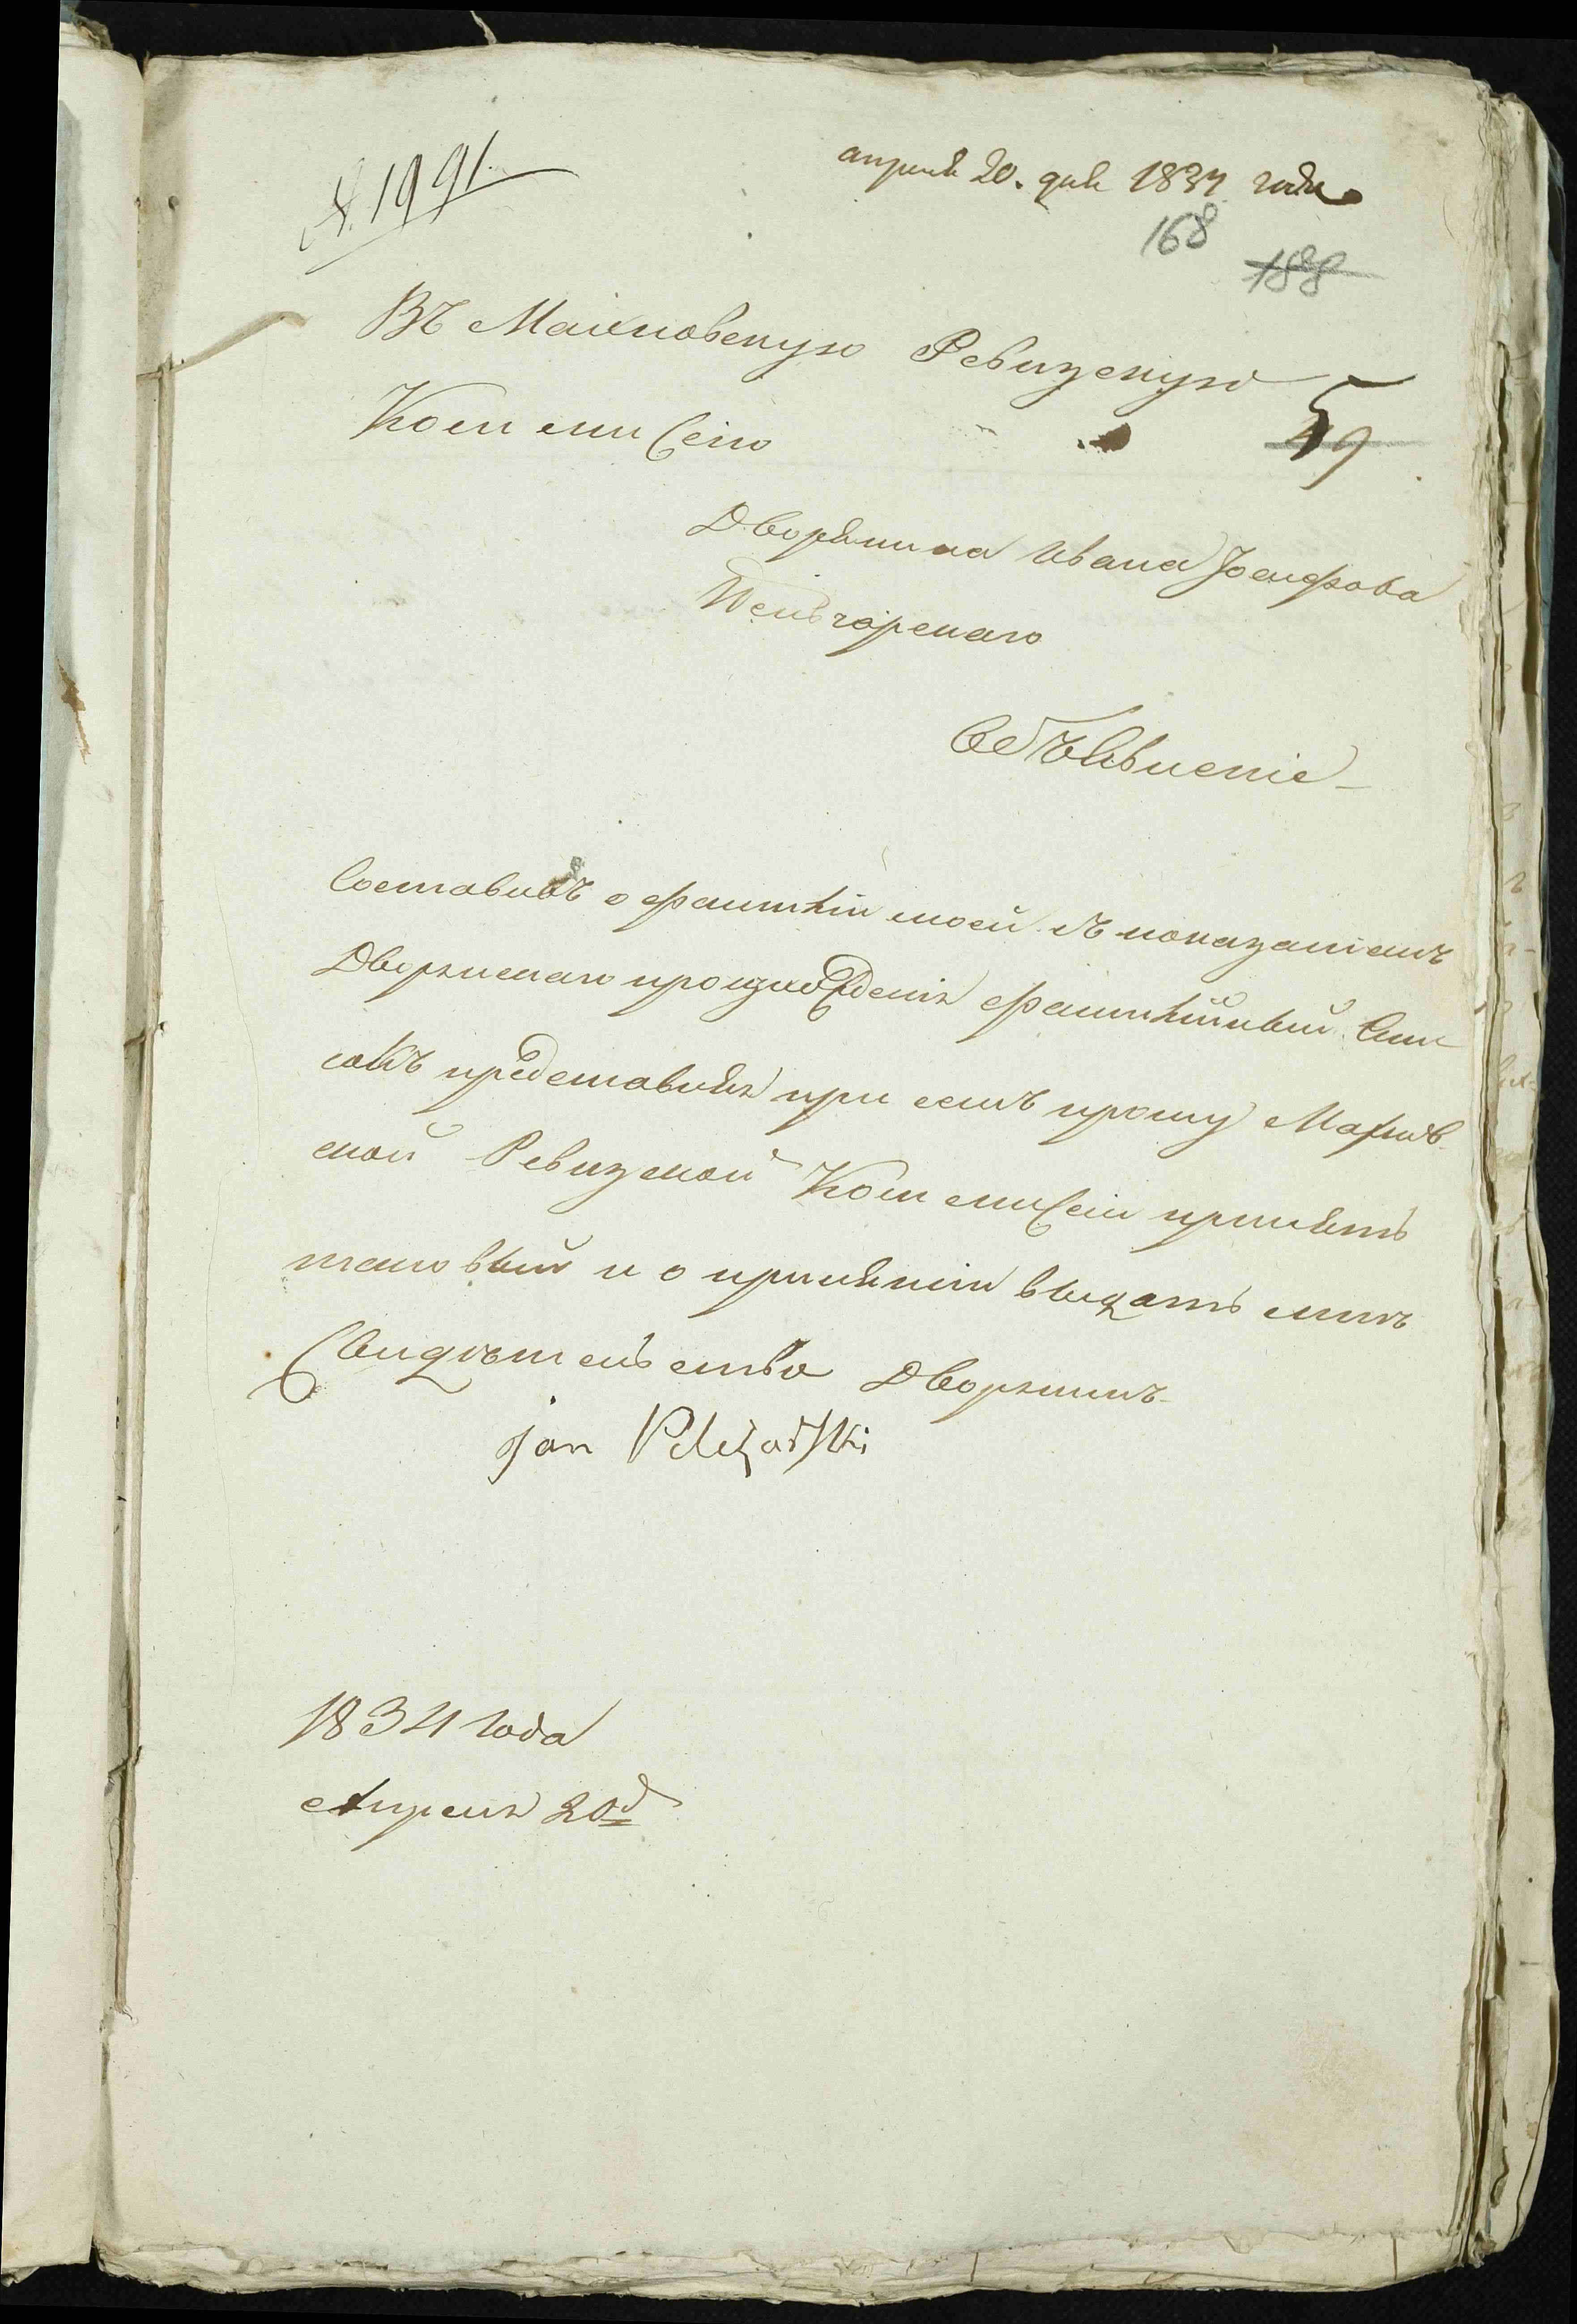 № 1991.
апреля 20. дня 1834 года
168
188
Въ Махновскую Ревизскую
Коммисію
59
Дворянина Ивана Іосифова
Пельчарскаго
Объявленіе
Составивъ о фамиліи моей съ показаніемъ
Дворянскаго произхожденія фамилійный Спи
сокъ представляя при семъ прошу Махнов-
ской Ревизской Коммисіи принять
таковый и о принятіи выдать мнѣ
Свидѣтельство Дворянинъ
Jan
1834 года
Апреля 20д